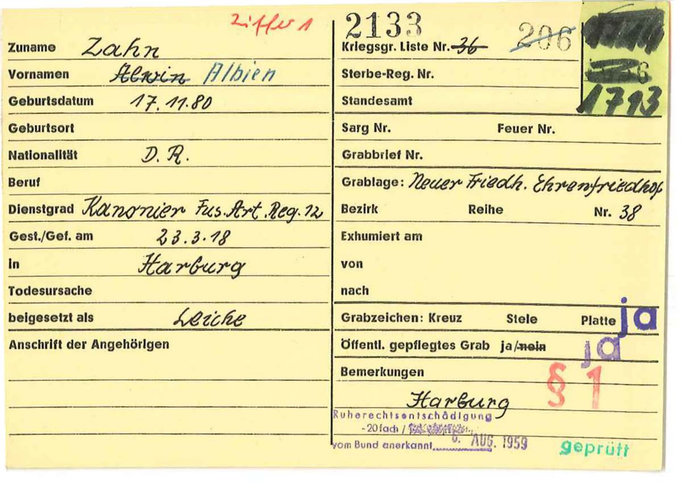 Ziffer 1
Zuname Zahn
Vornamen Alwin Albien
Geburtsdatum 17.11.80
Geburtsort
Nationalität D.R.
Beruf
Dienstgrad Kanonier Fus.Art.Reg.12
Gest./Gef. am 23.3.18
in Harburg
Todesursache
beigesetzt als Leiche
Anschrift der Angehörigen
2133
Kriegsgr. Liste Nr. 36 206
Sterbe-Reg. Nr.
Standesamt 1793
Sarg Nr. Feuer Nr.
Grabbrief Nr.
Grablage: Neuer Friedh. Ehrenfriedhof
Bezirk Reihe Nr. 38
Exhumiert am
von
nach
Grabzeichen: Kreuz Stele Platte ja
Öffentl. gepflegtes Grab ja/nein ja
Bemerkungen § 1
Harburg
Ruherechtsentschädigung
-20fach /
vom Bund anerkannt 6. AUG. 1959
geprüft